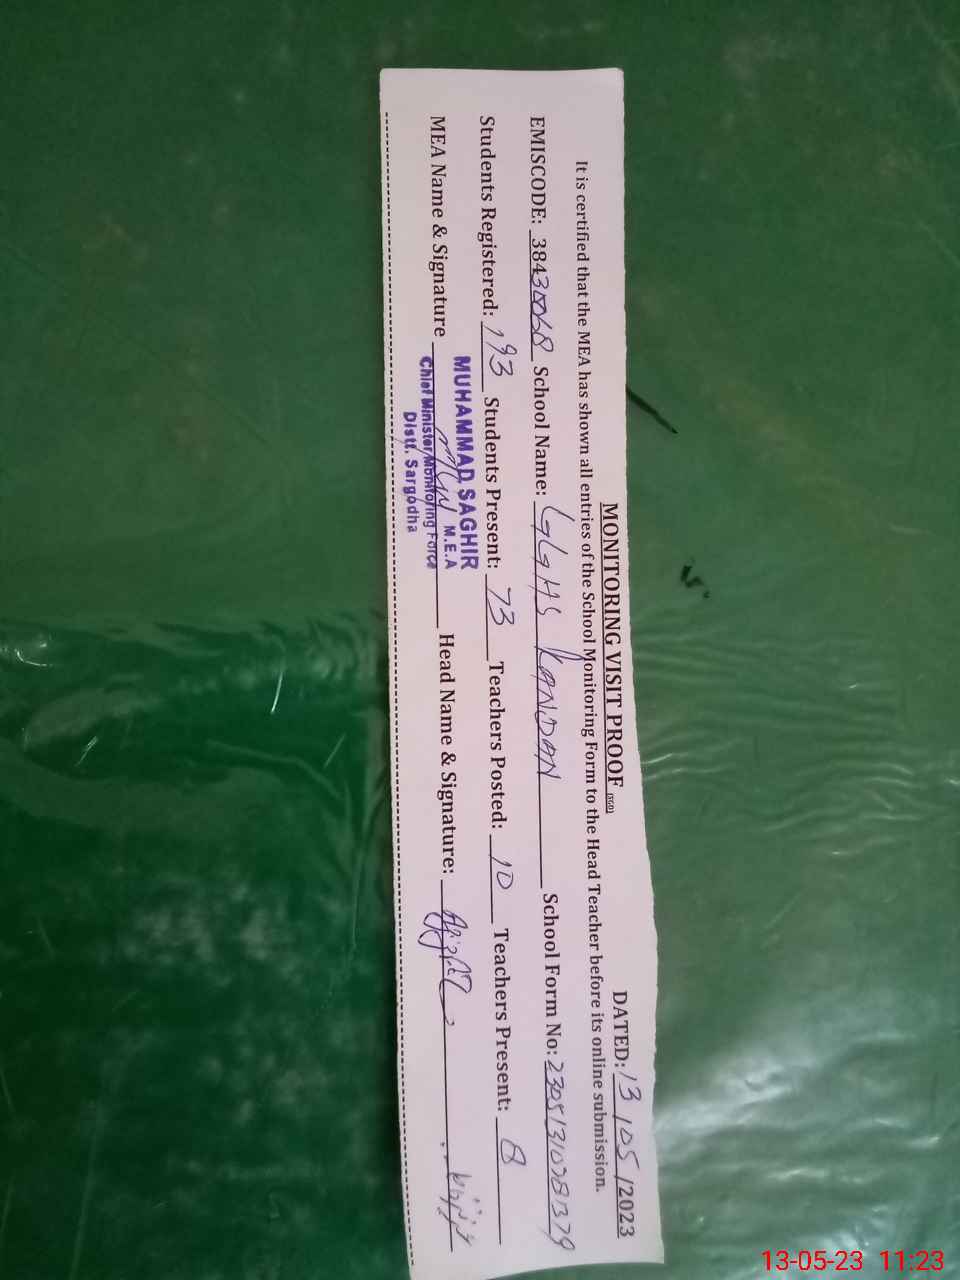 MONITORING VISIT PROOF (SGD)
DATED: 13 / 05 / 2023
It is certified that the MEA has shown all entries of the School Monitoring Form to the Head Teacher before its online submission.
EMISCODE: 38430068 School Name: GGHS KANDAN School Form No:
Students Registered: 193 Students Present: 73 Teachers Posted: 10 Teachers Present: 8
MEA Name & Signature Head Name & Signature:
MUHAMMAD SAGHIR
M.E.A
Chief Minister Monitoring Force
Distt. Sargodha
13-05-23 11:23